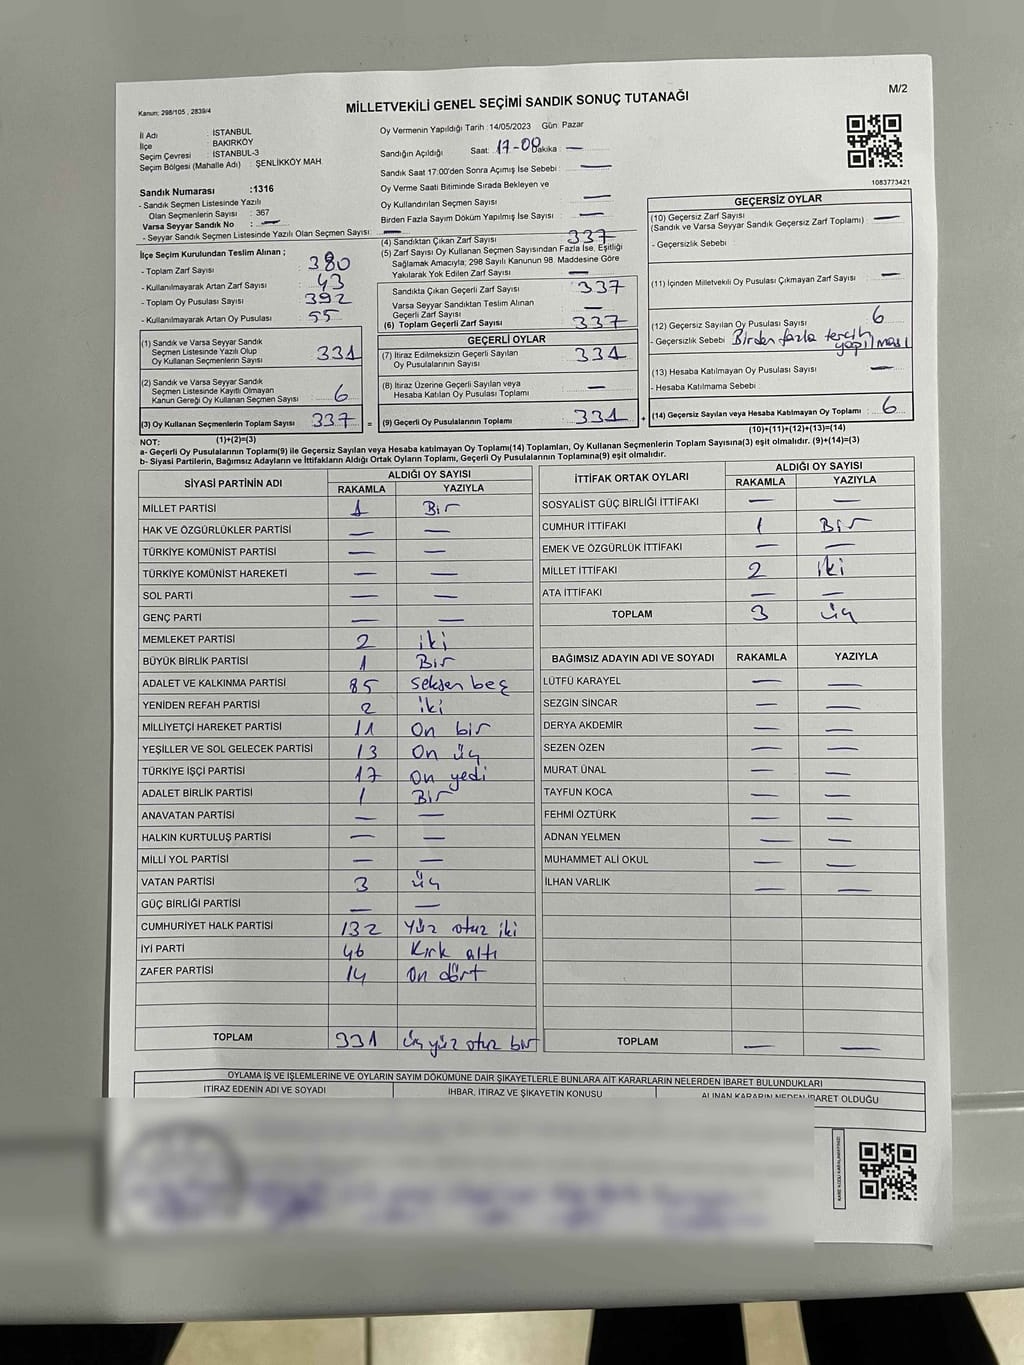 Kanun; 298/105 , 2839/4
MİLLETVEKİLİ GENEL SEÇİMİ SANDIK SONUÇ TUTANAĞI
M/2
İl Adı : İSTANBUL
İlçe : BAKIRKÖY
Seçim Çevresi : İSTANBUL-3
Seçim Bölgesi (Mahalle Adı) : ŞENLİKKÖY MAH
Sandık Numarası :1316
- Sandık Seçmen Listesinde Yazılı
Olan Seçmenlerin Sayısı : 367
Varsa Seyyar Sandık No : —
- Seyyar Sandık Seçmen Listesinde Yazılı Olan Seçmen Sayısı : —
Oy Vermenin Yapıldığı Tarih :14/05/2023 Gün: Pazar
Sandığın Açıldığı Saat: 17-00 Dakika : —
Sandık Saat 17:00'den Sonra Açımış İse Sebebi : —
Oy Verme Saati Bitiminde Sırada Bekleyen ve
Oy Kullandırılan Seçmen Sayısı : —
Birden Fazla Sayım Döküm Yapılmış İse Sayısı : —
1083773421
İlçe Seçim Kurulundan Teslim Alınan ;
- Toplam Zarf Sayısı : 380
- Kullanılmayarak Artan Zarf Sayısı : 43
- Toplam Oy Pusulası Sayısı : 392
- Kullanılmayarak Artan Oy Pusulası : 55
(1) Sandık ve Varsa Seyyar Sandık
Seçmen Listesinde Yazılı Olup
Oy Kullanan Seçmenlerin Sayısı : 331
(2) Sandık ve Varsa Seyyar Sandık
Seçmen Listesinde Kayıtlı Olmayan
Kanun Gereği Oy Kullanan Seçmen Sayısı : 6
(3) Oy Kullanan Seçmenlerin Toplam Sayısı : 337
(1)+(2)=(3)
(4) Sandıktan Çıkan Zarf Sayısı : 337
(5) Zarf Sayısı Oy Kullanan Seçmen Sayısından Fazla İse, Eşitliği
Sağlamak Amacıyla; 298 Sayılı Kanunun 98. Maddesine Göre
Yakılarak Yok Edilen Zarf Sayısı : —
Sandıkta Çıkan Geçerli Zarf Sayısı : 337
Varsa Seyyar Sandıktan Teslim Alınan
Geçerli Zarf Sayısı : —
(6) Toplam Geçerli Zarf Sayısı : 337
GEÇERLİ OYLAR
(7) İtiraz Edilmeksizin Geçerli Sayılan
Oy Pusulalarının Sayısı : 331
(8) İtiraz Üzerine Geçerli Sayılan veya
Hesaba Katılan Oy Pusulaları Toplamı : —
= (9) Geçerli Oy Pusulalarının Toplamı : 331
GEÇERSİZ OYLAR
(10) Geçersiz Zarf Sayısı : —
(Sandık ve Varsa Seyyar Sandık Geçersiz Zarf Toplamı)
- Geçersizlik Sebebi :
(11) İçinden Milletvekili Oy Pusulası Çıkmayan Zarf Sayısı : —
(12) Geçersiz Sayılan Oy Pusulası Sayısı : 6
- Geçersizlik Sebebi : Birden fazla tercih
yapılması
(13) Hesaba Katılmayan Oy Pusulası Sayısı : —
- Hesaba Katılmama Sebebi :
+ (14) Geçersiz Sayılan veya Hesaba Katılmayan Oy Toplamı : 6
(10)+(11)+(12)+(13)=(14)
NOT:
a- Geçerli Oy Pusulalarının Toplamı(9) ile Geçersiz Sayılan veya Hesaba katılmayan Oy Toplamı(14) Toplamları, Oy Kullanan Seçmenlerin Toplam Sayısına(3) eşit olmalıdır. (9)+(14)=(3)
b- Siyasi Partilerin, Bağımsız Adayların ve İttifakların Aldığı Ortak Oyların Toplamı, Geçerli Oy Pusulalarının Toplamına(9) eşit olmalıdır.
SİYASİ PARTİNİN ADI ALDIĞI OY SAYISI
RAKAMLA YAZIYLA
MİLLET PARTİSİ 1 Bir
HAK VE ÖZGÜRLÜKLER PARTİSİ — —
TÜRKİYE KOMÜNİST PARTİSİ — —
TÜRKİYE KOMÜNİST HAREKETİ — —
SOL PARTİ — —
GENÇ PARTİ — —
MEMLEKET PARTİSİ 2 iki
BÜYÜK BİRLİK PARTİSİ 1 Bir
ADALET VE KALKINMA PARTİSİ 85 seksen beş
YENİDEN REFAH PARTİSİ 2 iki
MİLLİYETÇİ HAREKET PARTİSİ 11 On bir
YEŞİLLER VE SOL GELECEK PARTİSİ 13 On üç
TÜRKİYE İŞÇİ PARTİSİ 17 On yedi
ADALET BİRLİK PARTİSİ 1 Bir
ANAVATAN PARTİSİ — —
HALKIN KURTULUŞ PARTİSİ — —
MİLLİ YOL PARTİSİ — —
VATAN PARTİSİ 3 üç
GÜÇ BİRLİĞİ PARTİSİ — —
CUMHURİYET HALK PARTİSİ 132 Yüz otuz iki
İYİ PARTİ 46 Kırk altı
ZAFER PARTİSİ 14 On dört
TOPLAM 331 üç yüz otuz bir
İTTİFAK ORTAK OYLARI ALDIĞI OY SAYISI
RAKAMLA YAZIYLA
SOSYALİST GÜÇ BİRLİĞİ İTTİFAKI — —
CUMHUR İTTİFAKI 1 Bir
EMEK VE ÖZGÜRLÜK İTTİFAKI — —
MİLLET İTTİFAKI 2 iki
ATA İTTİFAKI — —
TOPLAM 3 üç
BAĞIMSIZ ADAYIN ADI VE SOYADI RAKAMLA YAZIYLA
LÜTFÜ KARAYEL — —
SEZGİN SİNCAR — —
DERYA AKDEMİR — —
SEZEN ÖZEN — —
MURAT ÜNAL — —
TAYFUN KOCA — —
FEHMİ ÖZTÜRK — —
ADNAN YELMEN — —
MUHAMMET ALİ OKUL — —
İLHAN VARLIK — —
TOPLAM — —
OYLAMA İŞ VE İŞLEMLERİNE VE OYLARIN SAYIM DÖKÜMÜNE DAİR ŞİKAYETLERLE BUNLARA AİT KARARLARIN NELERDEN İBARET BULUNDUKLARI
İTİRAZ EDENİN ADI VE SOYADI İHBAR, İTİRAZ VE ŞİKAYETİN KONUSU ALINAN KARARIN NEDEN İBARET OLDUĞU